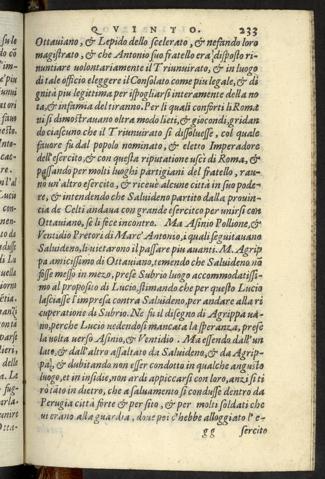 QVINTO. 233
Ottauiano, & Lepido dello scelerato, & nefando loro
magistrato, & che Antonio suo fratello era disposto ri-
nuntiare volontariamente il Triunuirato, & in luogo
di tale officio eleggere il Consolato come piu legale, & di
gnita piu legittima per ispogliarsi interamente della no
ta, & infamia del tiranno. Per li quali conforti li Roma
ni si dimostrauano oltra modo lieti, & giocondi, gridan
do ciascuno che il Triunuirato si dissoluesse, col quale
fauore fu dal popolo nominato, & eletto Imperadore
dell'esercito, & con questa riputatione usci di Roma, &
passando per molti luoghi partigiani del fratello, rau-
no un'altro esercito, & riceuè alcune città in suo pode-
re, & intendendo che Saluideno partito dalla prouin-
cia de Celti andaua con grande esercito per unirsi con
Ottauiano, se li fece incontro. Ma Asinio Pollione, &
Ventidio Pretori di Marc'Antonio, i quali seguitauano
Saluideno, li uietarono il passare piu auanti. M. Agrip
pa amicissimo di Ottauiano, temendo che Saluideno nō
fosse messo in mezo, prese Subrio luogo accommodatissi-
mo al proposito di Lucio, stimando che per questo Lucio
lasciasse l'impresa contra Saluideno, per andare alla ri
cuperatione di Subrio. Ne fu il disegno di Agrippa uà-
no, perche Lucio uedendosi mancata la speranza, prese
la uolta uerso Asinio, & Ventidio. Ma essendo dall'un
lato, & dall'altro assaltato da Saluideno, & da Agrip-
pa, & dubitando non esser condotto in qualche angusto
luogo, et in insidie, non ardì appiccarsi con loro, anzi si ti
rò tato in dietro, che a saluamento si condusse dentro da
Perugia città forte & per sito, & per molti soldati che
ui erano alla guardia, doue poi c'hebbe alloggiato l'e-
gg sercito